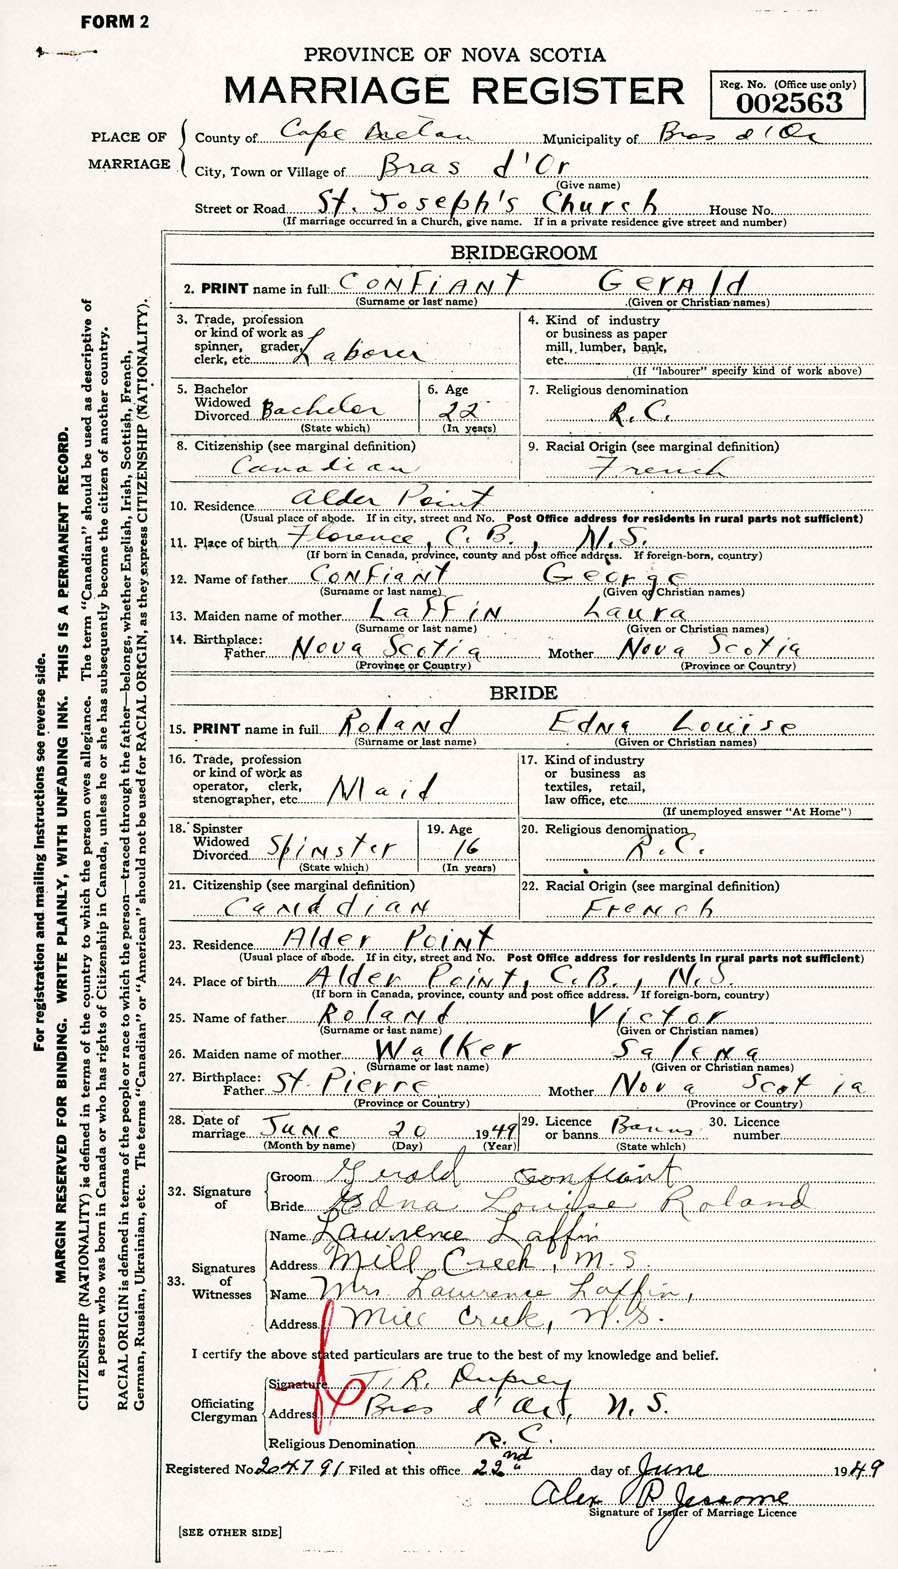 FORM 2
PROVINCE OF NOVA SCOTIA
MARRIAGE REGISTER
Reg. No. (Office use only)
002563
PLACE OF MARRIAGE
County of Cape Breton Municipality of Bras d'Or
City, Town or Village of Bras d'Or
(Give name)
Street or Road St. Joseph's Church House No.
(If marriage occurred in a Church, give name. If in a private residence give street and number)
BRIDEGROOM
2. PRINT name in full: Confiant Gerald
(Surname or last name) (Given or Christian names)
3. Trade, profession or kind of work as spinner, grader, clerk, etc. Laborer
4. Kind of industry or business as paper mill, lumber, bank, etc.
(If "labourer" specify kind of work above)
5. Bachelor Widowed Divorced Bachelor
(State which)
6. Age 22
(In years)
7. Religious denomination
R.C.
8. Citizenship (see marginal definition)
Canadian
9. Racial Origin (see marginal definition)
French
10. Residence Alder Point
(Usual place of abode. If in city, street and No. Post Office address for residents in rural parts not sufficient)
11. Place of birth Florence, C.B., N.S.
(If born in Canada, province, county and post office address. If foreign-born, country)
12. Name of father Confiant George
(Surname or last name) (Given or Christian names)
13. Maiden name of mother Laffin Laura
(Surname or last name) (Given or Christian names)
14. Birthplace: Father Nova Scotia Mother Nova Scotia
(Province or Country) (Province or Country)
BRIDE
15. PRINT name in full Roland Edna Louise
(Surname or last name) (Given or Christian names)
16. Trade, profession or kind of work as operator, clerk, stenographer, etc. Maid
17. Kind of industry or business as textiles, retail, law office, etc.
(If unemployed answer "At Home")
18. Spinster Widowed Divorced Spinster
(State which)
19. Age 16
(In years)
20. Religious denomination
R.C.
21. Citizenship (see marginal definition)
Canadian
22. Racial Origin (see marginal definition)
French
23. Residence Alder Point
(Usual place of abode. If in city, street and No. Post Office address for residents in rural parts not sufficient)
24. Place of birth Alder Point, C.B., N.S.
(If born in Canada, province, county and post office address. If foreign-born, country)
25. Name of father Roland Victor
(Surname or last name) (Given or Christian names)
26. Maiden name of mother Walker Salena
(Surname or last name) (Given or Christian names)
27. Birthplace: Father St. Pierre Mother Nova Scotia
(Province or Country) (Province or Country)
28. Date of marriage June 20 1949
(Month by name) (Day) (Year)
29. Licence or banns Banns
(State which)
30. Licence number
32. Signature of
Groom Gerald Confiant
Bride Edna Louise Roland
33. Signatures of Witnesses
Name Lawrence Laffin
Address Mill Creek, N.S.
Name Mrs Lawrence Laffin,
Address Mill Creek, N.S.
I certify the above stated particulars are true to the best of my knowledge and belief.
Officiating Clergyman
Signature T. R. Duprey
Address Bras d'Or, N.S.
Religious Denomination R.C.
Registered No. 204791 Filed at this office 22nd day of June 1949
Alex P Jessome
Signature of Issuer of Marriage Licence
[SEE OTHER SIDE]
For registration and mailing instructions see reverse side.
MARGIN RESERVED FOR BINDING. WRITE PLAINLY, WITH UNFADING INK. THIS IS A PERMANENT RECORD.
CITIZENSHIP (NATIONALITY) is defined in terms of the country to which the person owes allegiance. The term "Canadian" should be used as descriptive of
a person who was born in Canada or who has rights of Citizenship in Canada, unless he or she has subsequently become the citizen of another country.
RACIAL ORIGIN is defined in terms of the people or race to which the person—traced through the father—belongs, whether English, Irish, Scottish, French,
German, Russian, Ukrainian, etc. The terms "Canadian" or "American" should not be used for RACIAL ORIGIN, as they express CITIZENSHIP (NATIONALITY).